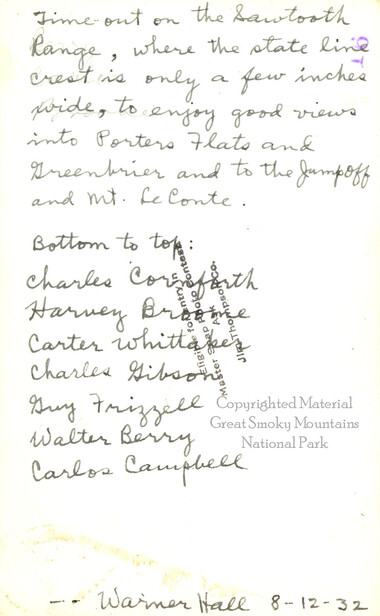 Time-out on the Sawtooth
Range, where the state line
crest is only a few inches
wide, to enjoy good views
into Porters Flats and
Greenbrier and to the Jumpoff
and Mt. Le Conte.
Bottom to top:
Charles Cornforth
Harvey Broome
Carter Whittaker
Charles Gibson
Guy Frizzell
Walter Berry
Carlos Campbell
Eligible to Entry in
Master Snap Photo Contest
Ask
Jim Thompson Co.
Copyrighted Material
Great Smoky Mountains
National Park
-- Warner Hall 8-12-32